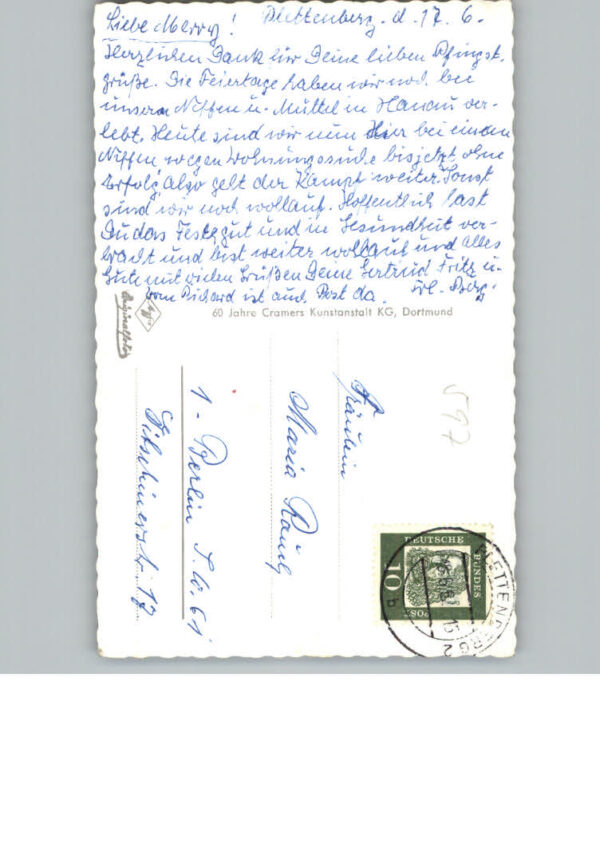 Plettenberg. d. 17. 6.
Liebe Merry!
Herzlichen Dank für Deine lieben Pfingst.
grüße. Die Feiertage haben wir noch bei
unsern Niffen u. Muttel in Hanau ver-
lebt. Heute sind wir nun Hier bei einem
Niffen wegen Wohnungssuche bisjetzt ohne
Erfolg, also gelt der Kampf weiter. Sonst
sind wir noch wollauf. Hoffentlich hast
Du das Fest gut und in Gesundheit ver-
bracht und bist weiter wollauf und alles
Gute mit vielen Grüßen Deine Gertrud Fritz u.
vom Richard ist auch Post da.
Agfa
Originalfoto
60 Jahre Cramers Kunstanstalt KG, Dortmund
597
Fräulein
Maria
1 - Berlin S.W. 61
17
DEUTSCHE BUNDESPOST
10
PLETTENBERG 2
b